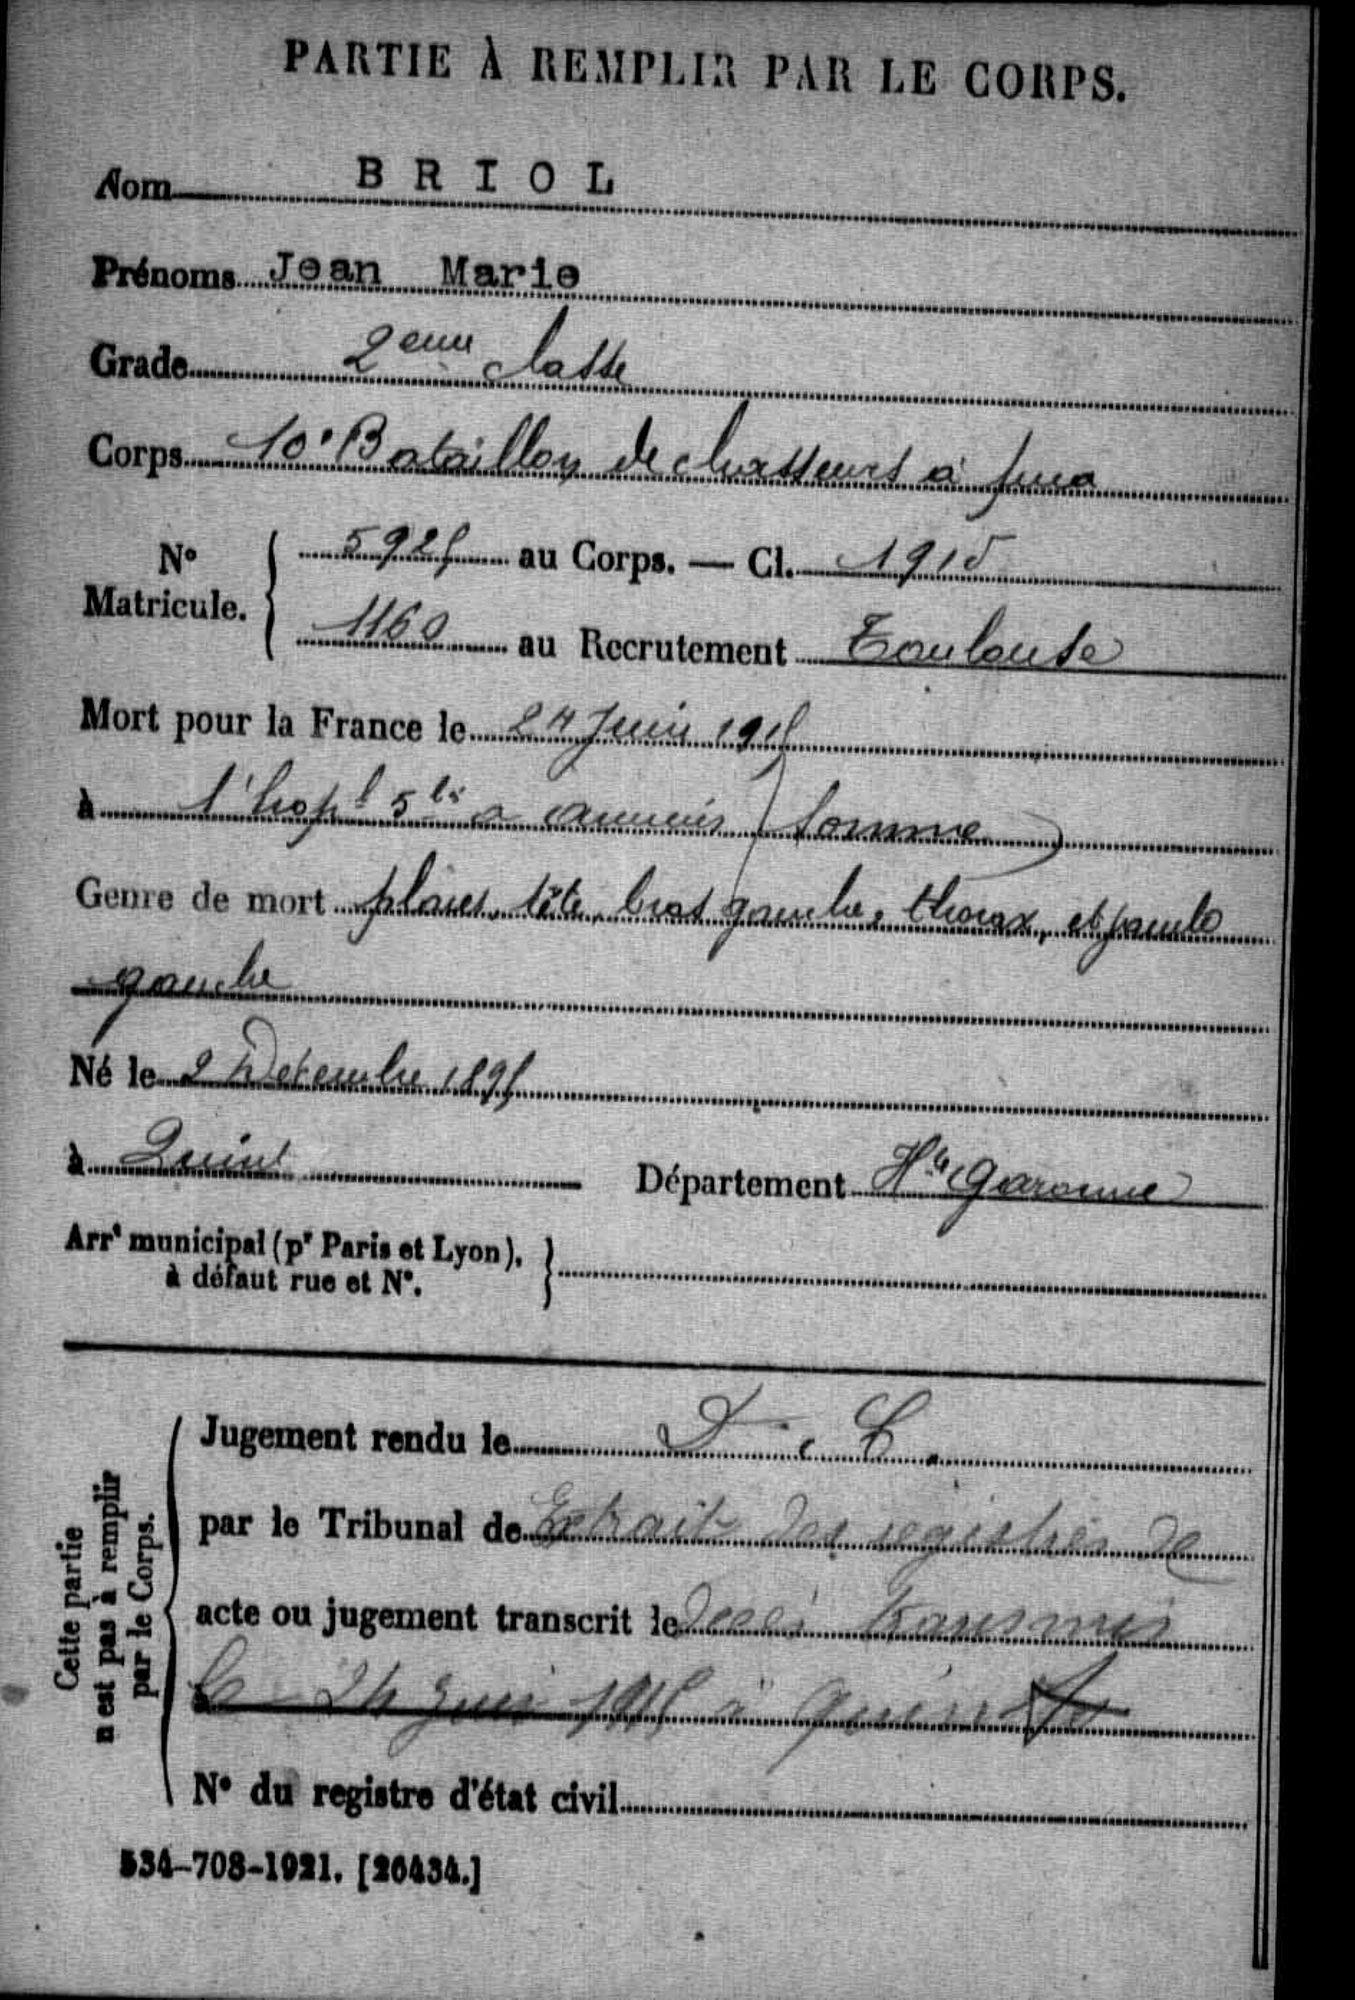 PARTIE À REMPLIR PAR LE CORPS.
Nom BRIOL
Prénoms Jean Marie
Grade 2eme classe
Corps 10e Bataillon de chasseurs à pied
N° Matricule. { 5925 au Corps. — Cl. 1915
1160 au Recrutement Toulouse
Mort pour la France le 24 Juin 1915
à l'hopl 5bis a (Somme)
Genre de mort plaies, tête, bras gauche, thorax, et jambe
gauche
Né le 2 Décembre 1895
à Quint Département Hte Garonne
Arrt municipal (pr Paris et Lyon), à défaut rue et N°. }
Cette partie n'est pas à remplir par le Corps. {
Jugement rendu le D. C.
par le Tribunal de Extrait des registres de
acte ou jugement transcrit le décès transmis
le 24 Juin 1915 à Quint
N° du registre d'état civil
534-708-1921. [26434.]